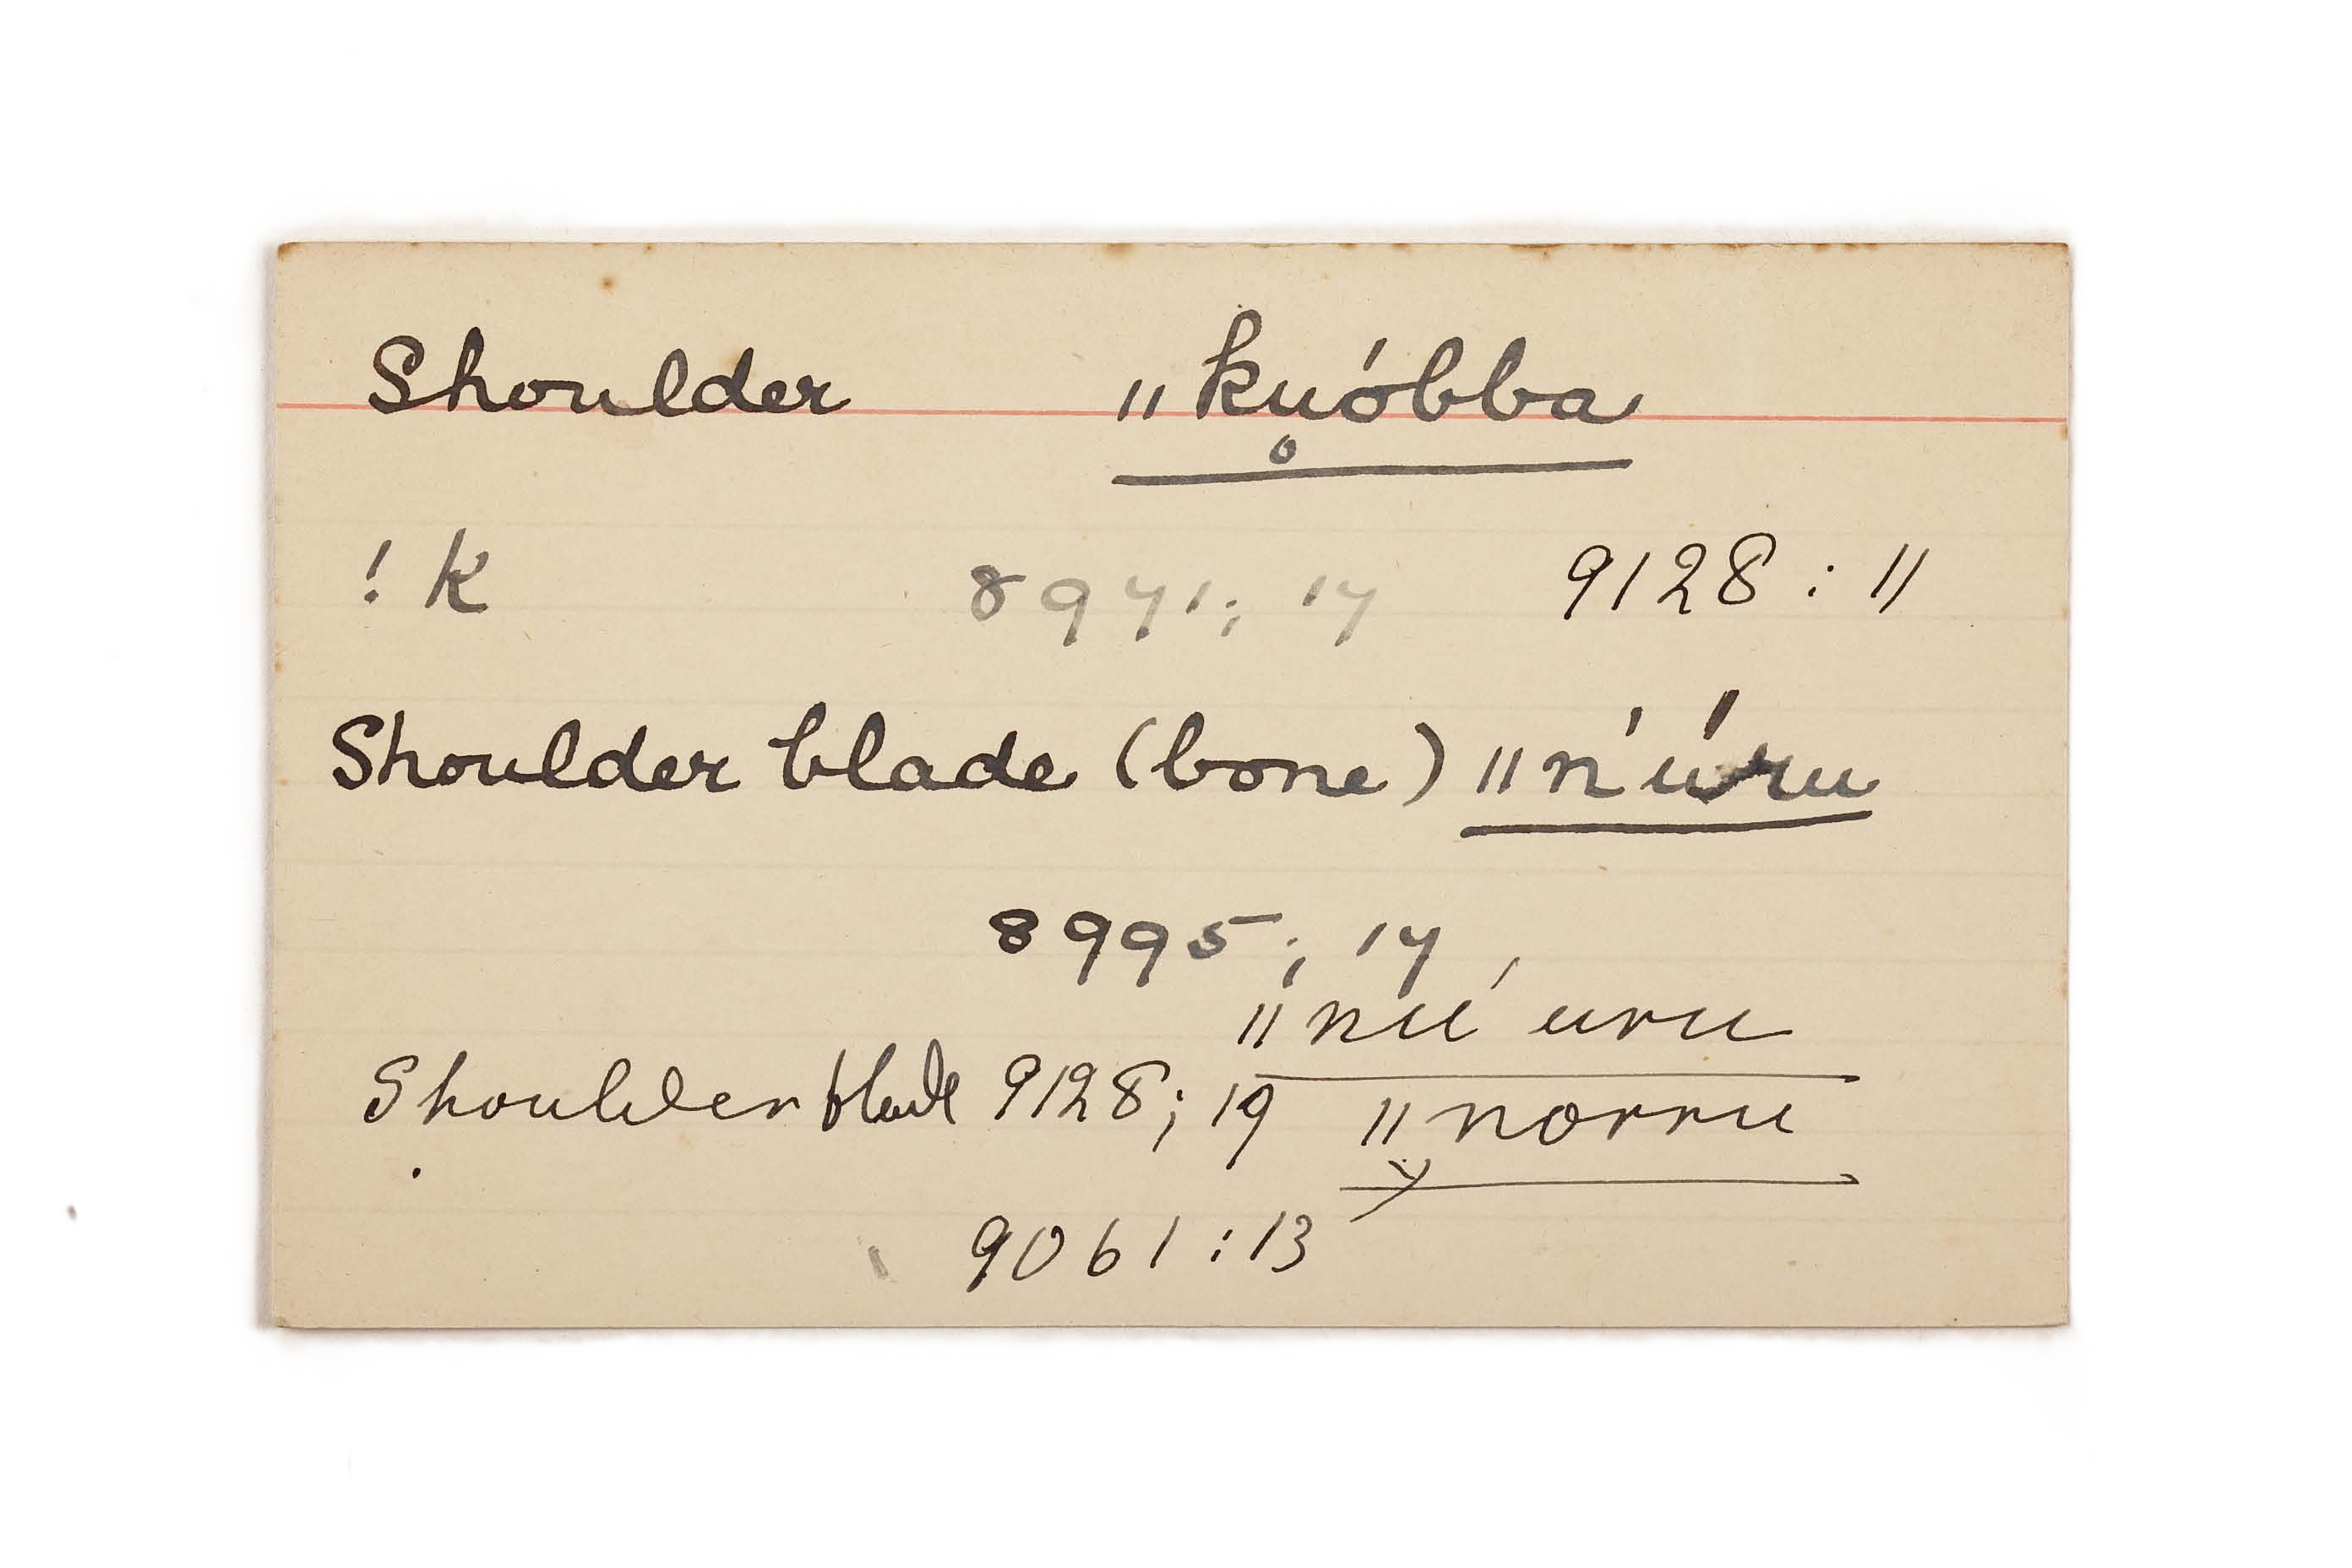 Shoulder ‖ku̥óbba
! k 8971; 17 9128 : 11
Shoulder blade (bone) ‖n'úru
8995; 17
‖nu' uru
Shoulder blade 9128; 19 ‖norru
9061 : 13